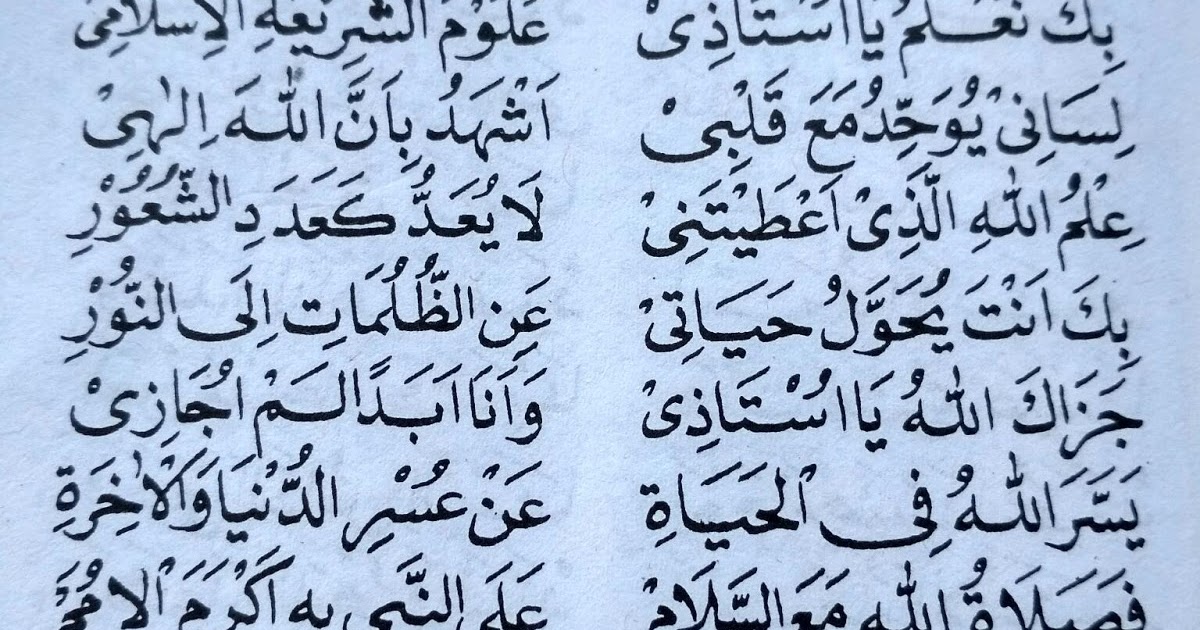 بِكَ نَعْلَمُ يَا اُسْتَاذِىْ عُلُوْمَ الشَّرِيْعَةِ الْاِسْلَامِىْ
لِسَانِىْ يُوَحِّدُ مَعَ قَلْبِىْ اَشْهَدُ بِاَنَّ اللهَ اِلٰهِىْ
عِلْمُ اللهِ الَّذِىْ اَعْطَيْتَنِىْ لَا يُعَدُّ كَعَدَدِ الشُّعُوْرِ
بِكَ اَنْتَ يُحَوَّلُ حَيَاتِىْ عَنِ الظُّلُمَاتِ اِلَى النُّوْرِ
جَزَاكَ اللهُ يَا اُسْتَاذِىْ وَاَنَا اَبَدًا لَمْ اُجَازِىْ
يَسَّرَ اللهُ فِى الْحَيَاةِ عَنْ عُسْرِ الدُّنْيَا وَالْاٰخِرَةِ
فَصَلَاةُ اللهِ مَعَ السَّلَامْ عَلَى النَّبِى بِهِ اَكْرَمَ الْاُمَمْ